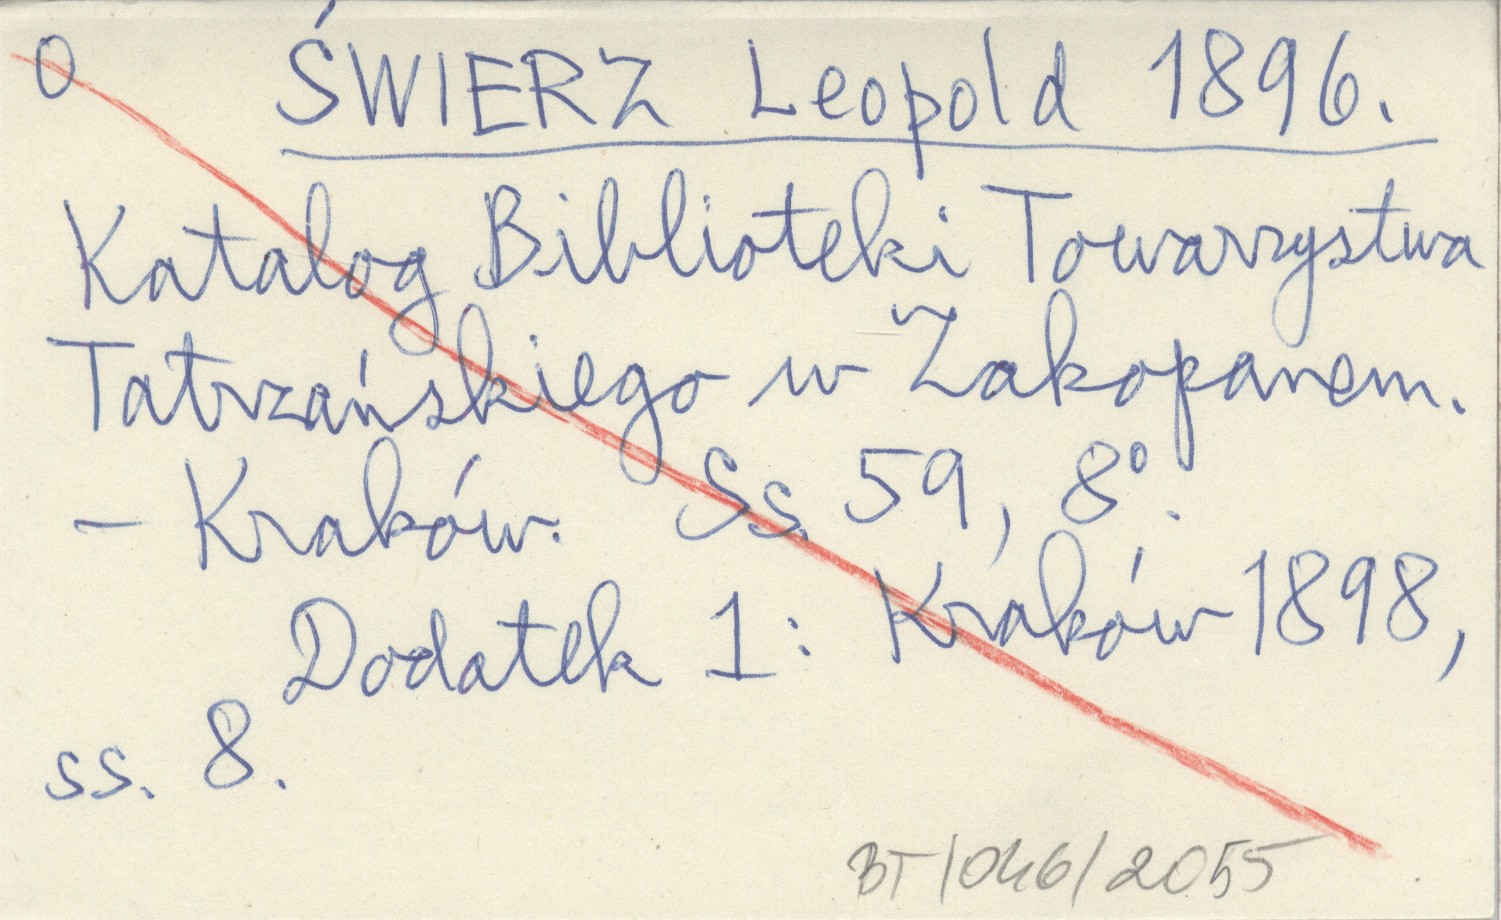 0 ŚWIERZ Leopold 1896.
Katalog Biblioteki Towarzystwa
Tatrzańskiego w Zakopanem.
- Kraków. Ss. 59, 8°.
Dodatek 1: Kraków 1898,
ss. 8.
BT/046/2055